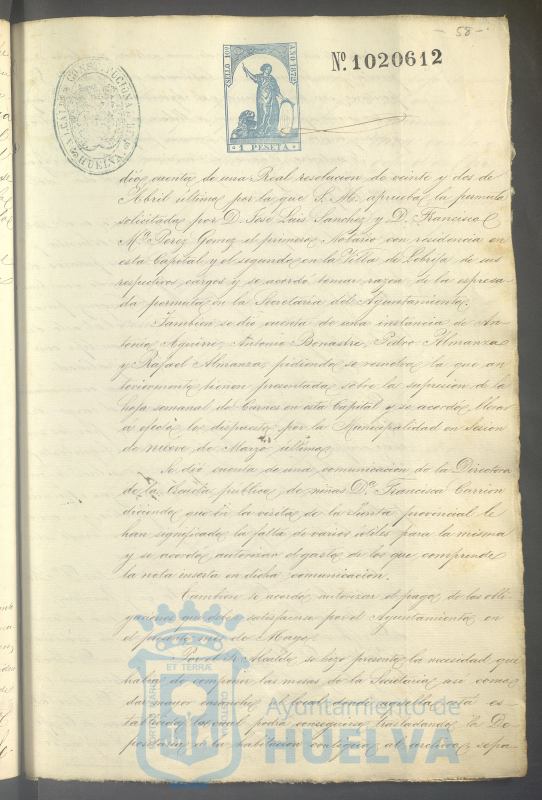 - 58 -
Nº 1020612
SELLO 10º
AÑO 1875
1 PESETA
ALCALDIA CONSTITUCIONAL DE HUELVA
dió cuenta de una Real resolucion de veinte y dos de
Abril último por la que S. M. aprueba la permuta
solicitada por D. José Luis Sanchez y D. Francisco
Mª Perez Gomez el primero, Notario con residencia en
esta Capital y el segundo en la Villa de Lebrija de sus
respectivos cargos y se acordó tomar razon de la espresa-
da permuta en la Secretaria del Ayuntamiento.
Tambien se dió cuenta de una instancia de An-
tonio Aquino, Antonio Benastre, Pedro Almanza
y Rafael Almanza, pidiendo se resuelva la que an-
teriormente tienen presentada sobre la supresion de la
hoja semanal de Carnes en esta Capital y se acordó, llevar
a efecto lo dispuesto por la Municipalidad en Sesion
de nueve de Marzo último.
Se dió cuenta de una comunicacion de la Directora
de la Escuela publica de niñas Dª Francisca Carrion
diciendo que en la visita de la Junta provincial le
han significado la falta de varios útiles para la misma
y se acordó autorizar el gasto de los que comprende
la nota inserta en dicha comunicacion.
Tambien se acordó autorizar el pago de las obli-
gaciones que debe satisfacerse por el Ayuntamiento en
el presente mes de Mayo.
Por el Sr. Alcalde se hizo presente la necesidad que
habia de componer las mesas de la Secretaria asi como
dar mayor ensanche al local en que ella está es-
tablecida lo cual podrá conseguirse trasladando la De-
positaria a la habitacion contigua al archivo, sepa-
ET TERRÆ
PORTUS MARIS
CUSTODIO
Ayuntamiento de
HUELVA